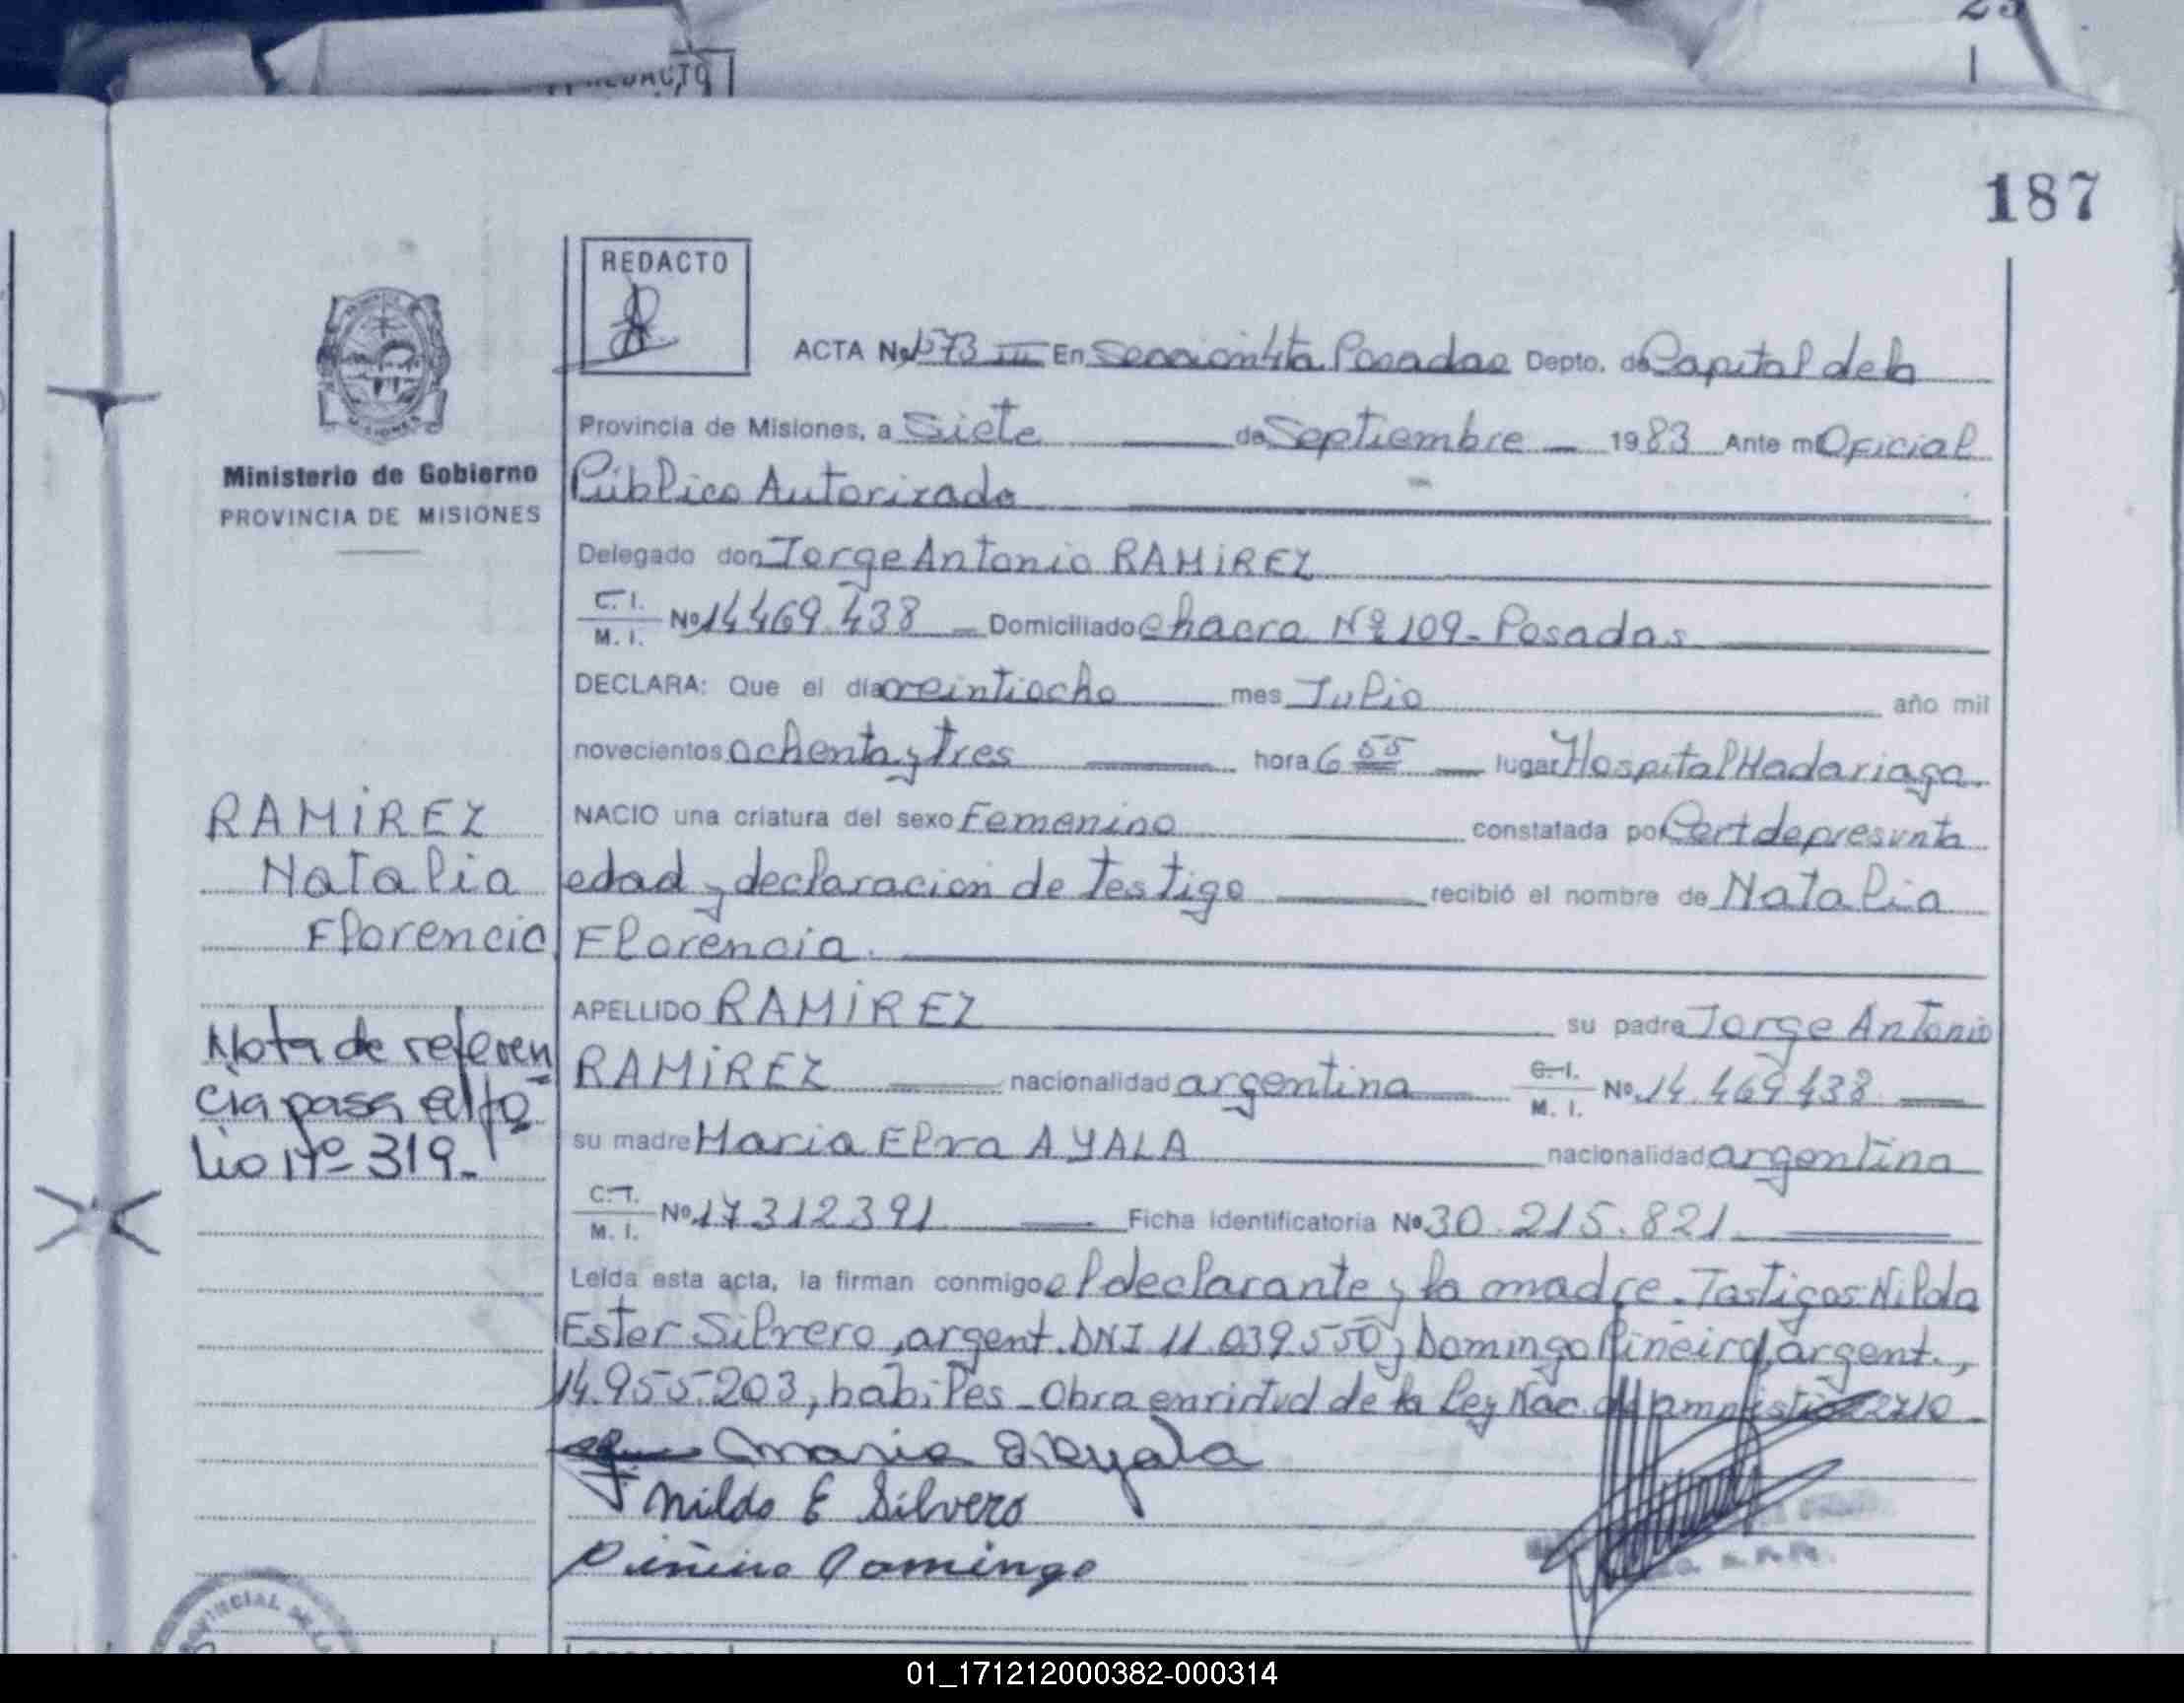 REDACTO
187
REDACTO
ACTA Nº 1573 III En Sección 4ta Posadas Depto. de Capital de la
Provincia de Misiones, a Siete de Septiembre 1983 Ante mí Oficial
Ministerio de Gobierno
PROVINCIA DE MISIONES
Público Autorizado
Delegado don Jorge Antonio RAMIREZ
C. I. M. I. Nº 14469.438 Domiciliado chacra Nº 109 - Posadas
DECLARA: Que el día veintiocho mes Julio año mil
novecientos ochenta y tres hora 6 55 lugar Hospital Madariaga.
RAMIREZ
Natalia
Florencia
NACIO una criatura del sexo Femenino constatada por Cert de presunta
edad y declaracion de testigo recibió el nombre de Natalia
Florencia.
APELLIDO RAMIREZ su padre Jorge Antonio
RAMIREZ nacionalidad argentina C. I. M. I. Nº 14.469438
Nota de referen
cia pasa al fo
lio Nº 319.-
su madre Maria Elva AYALA nacionalidad argentina
C. I. M. I. Nº 17312391 Ficha Identificatoria Nº 30.215.821
Leída esta acta, la firman conmigo el declarante y la madre. Testigos: Nilda
Ester Silvero, argent. DNI 11.039550 y Domingo Piñeiro, argent.,
14.955.203, habiles - Obra en virtud de la Ley Nac. de amnistia 22710
Maria E Ayala
Nilda E Silvero
Piñeiro Domingo
01_171212000382-000314